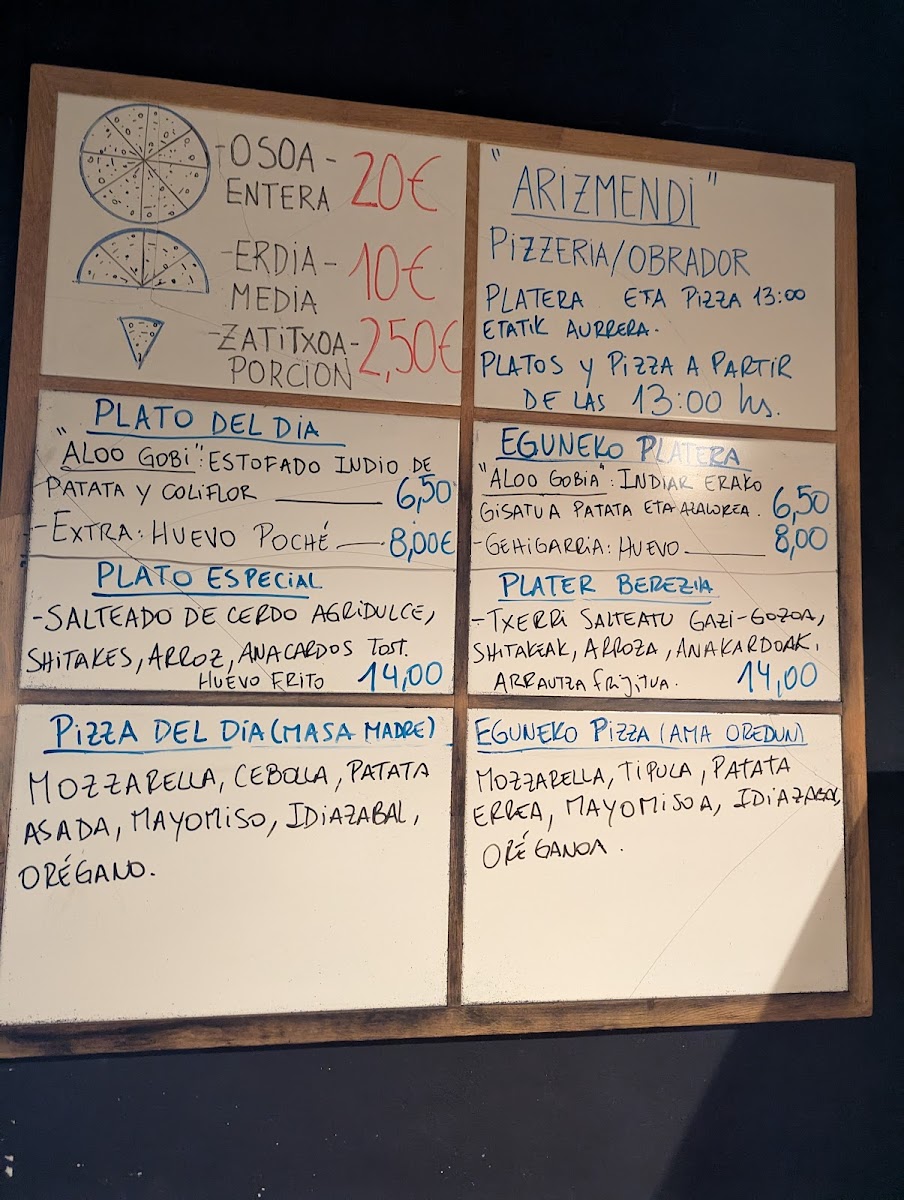 -OSOA-
ENTERA 20€
-ERDIA-
MEDIA 10€
-ZATITXOA-
PORCION 2,50€
"ARIZMENDI"
PIZZERIA/OBRADOR
PLATERA ETA PIZZA 13:00
ETATIK AURRERA.
PLATOS Y PIZZA A PARTIR
DE LAS 13:00 hs.
PLATO DEL DIA
"ALOO GOBI": ESTOFADO INDIO DE
PATATA Y COLIFLOR 6,50
-EXTRA: HUEVO POCHÉ 8,00€
PLATO ESPECIAL
-SALTEADO DE CERDO AGRIDULCE,
SHITAKES, ARROZ, ANACARDOS TOST.
HUEVO FRITO 14,00
EGUNEKO PLATERA
"ALOO GOBIA": INDIAR ERAKO
GISATUA PATATA ETA AZALOREA. 6,50
-GEHIGARRIA: HUEVO 8,00
PLATER BEREZIA
-TXERRI SALTEATU GAZI-GOZOA,
SHITAKEAK, ARROZA, ANAKARDOAK,
ARRAUTZA FRIJITUA. 14,00
PIZZA DEL DIA (MASA MADRE)
MOZZARELLA, CEBOLLA, PATATA
ASADA, MAYOMISO, IDIAZABAL,
ORÉGANO.
EGUNEKO PIZZA (AMA OREDUN)
MOZZARELLA, TIPULA, PATATA
ERREA, MAYOMISOA, IDIAZABAL,
ORÉGANOA.